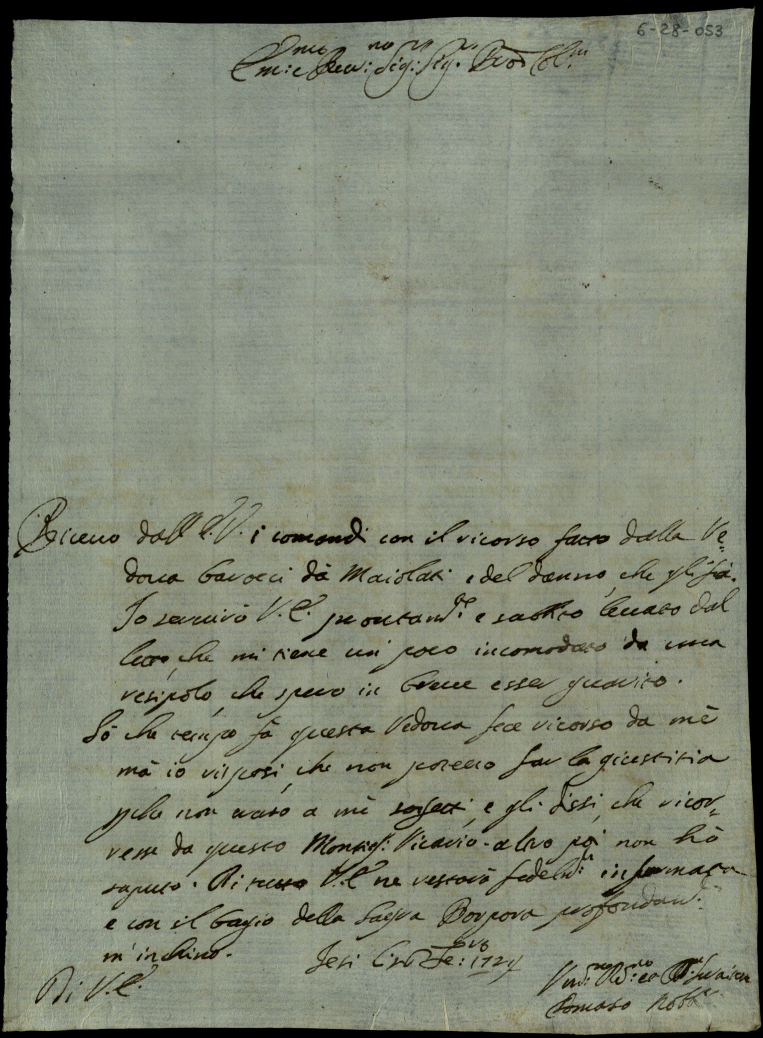 6-28-053
Em: e Rev: Sig: Sig: Pron Col:
Riceuo dall'E.V. i comandi con il ricorso fatto dalla Ve=
doua Barocci da Maiolati, e del danno, che gli fà.
Io seruirò V.E. prontam.te e subito leuato dal
letto, che mi tiene un poco incomodato da una
resipola, che spero in breue esser guarito.
Sò che tempo fà questa Vedoua fece ricorso da mè
mà io risposi, che non poteuo far la giustitia
p che non erano a mè sogetti, e gli dissi, che ricor=
resse da questo Monsig: Vicario. altro poi non hò
saputo. Di tutto V.E. ne restarà fedelm. informata
e con il bagio della Sagra Porpora profondam.
m'inchino. Jesi 1724
Di V.E.
Tomaso